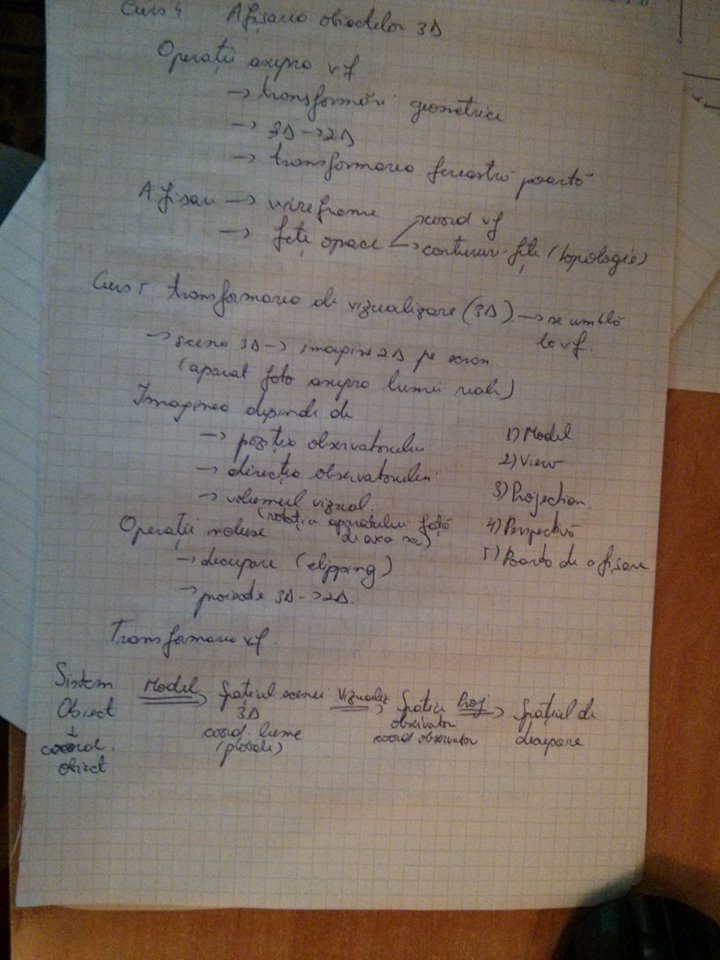 Curs 4 Afișarea obiectelor 3D
Operații asupra vf
→ transformări geometrice
→ 3D → 2D
→ transformarea fereastră poartă
Afișare → wireframe
→ fețe opace → coord vf
→ contururi fețe (topologie)
Curs 5 Transformarea de vizualizare (3D) → se umblă la vf.
→ scena 3D → imagine 2D pe ecran
(aparat foto asupra lumii reale)
Imaginea depinde de
→ poziția observatorului
→ direcția observatorului
→ volumul vizual
(rotația aparatului față de axa sa)
1) Model
2) View
3) Projection
4) Perspectivă
5) Poarta de afișare
Operații incluse
→ decupare (clipping)
→ proiecție 3D → 2D.
Transformarea vf.
Sistem Obiect ↓ coord. obiect
Model →
Spațiul scenei 3D coord. lume (globale)
Vizualiz →
Spațiu observator coord observator
Proj →
Spațiul de decupare